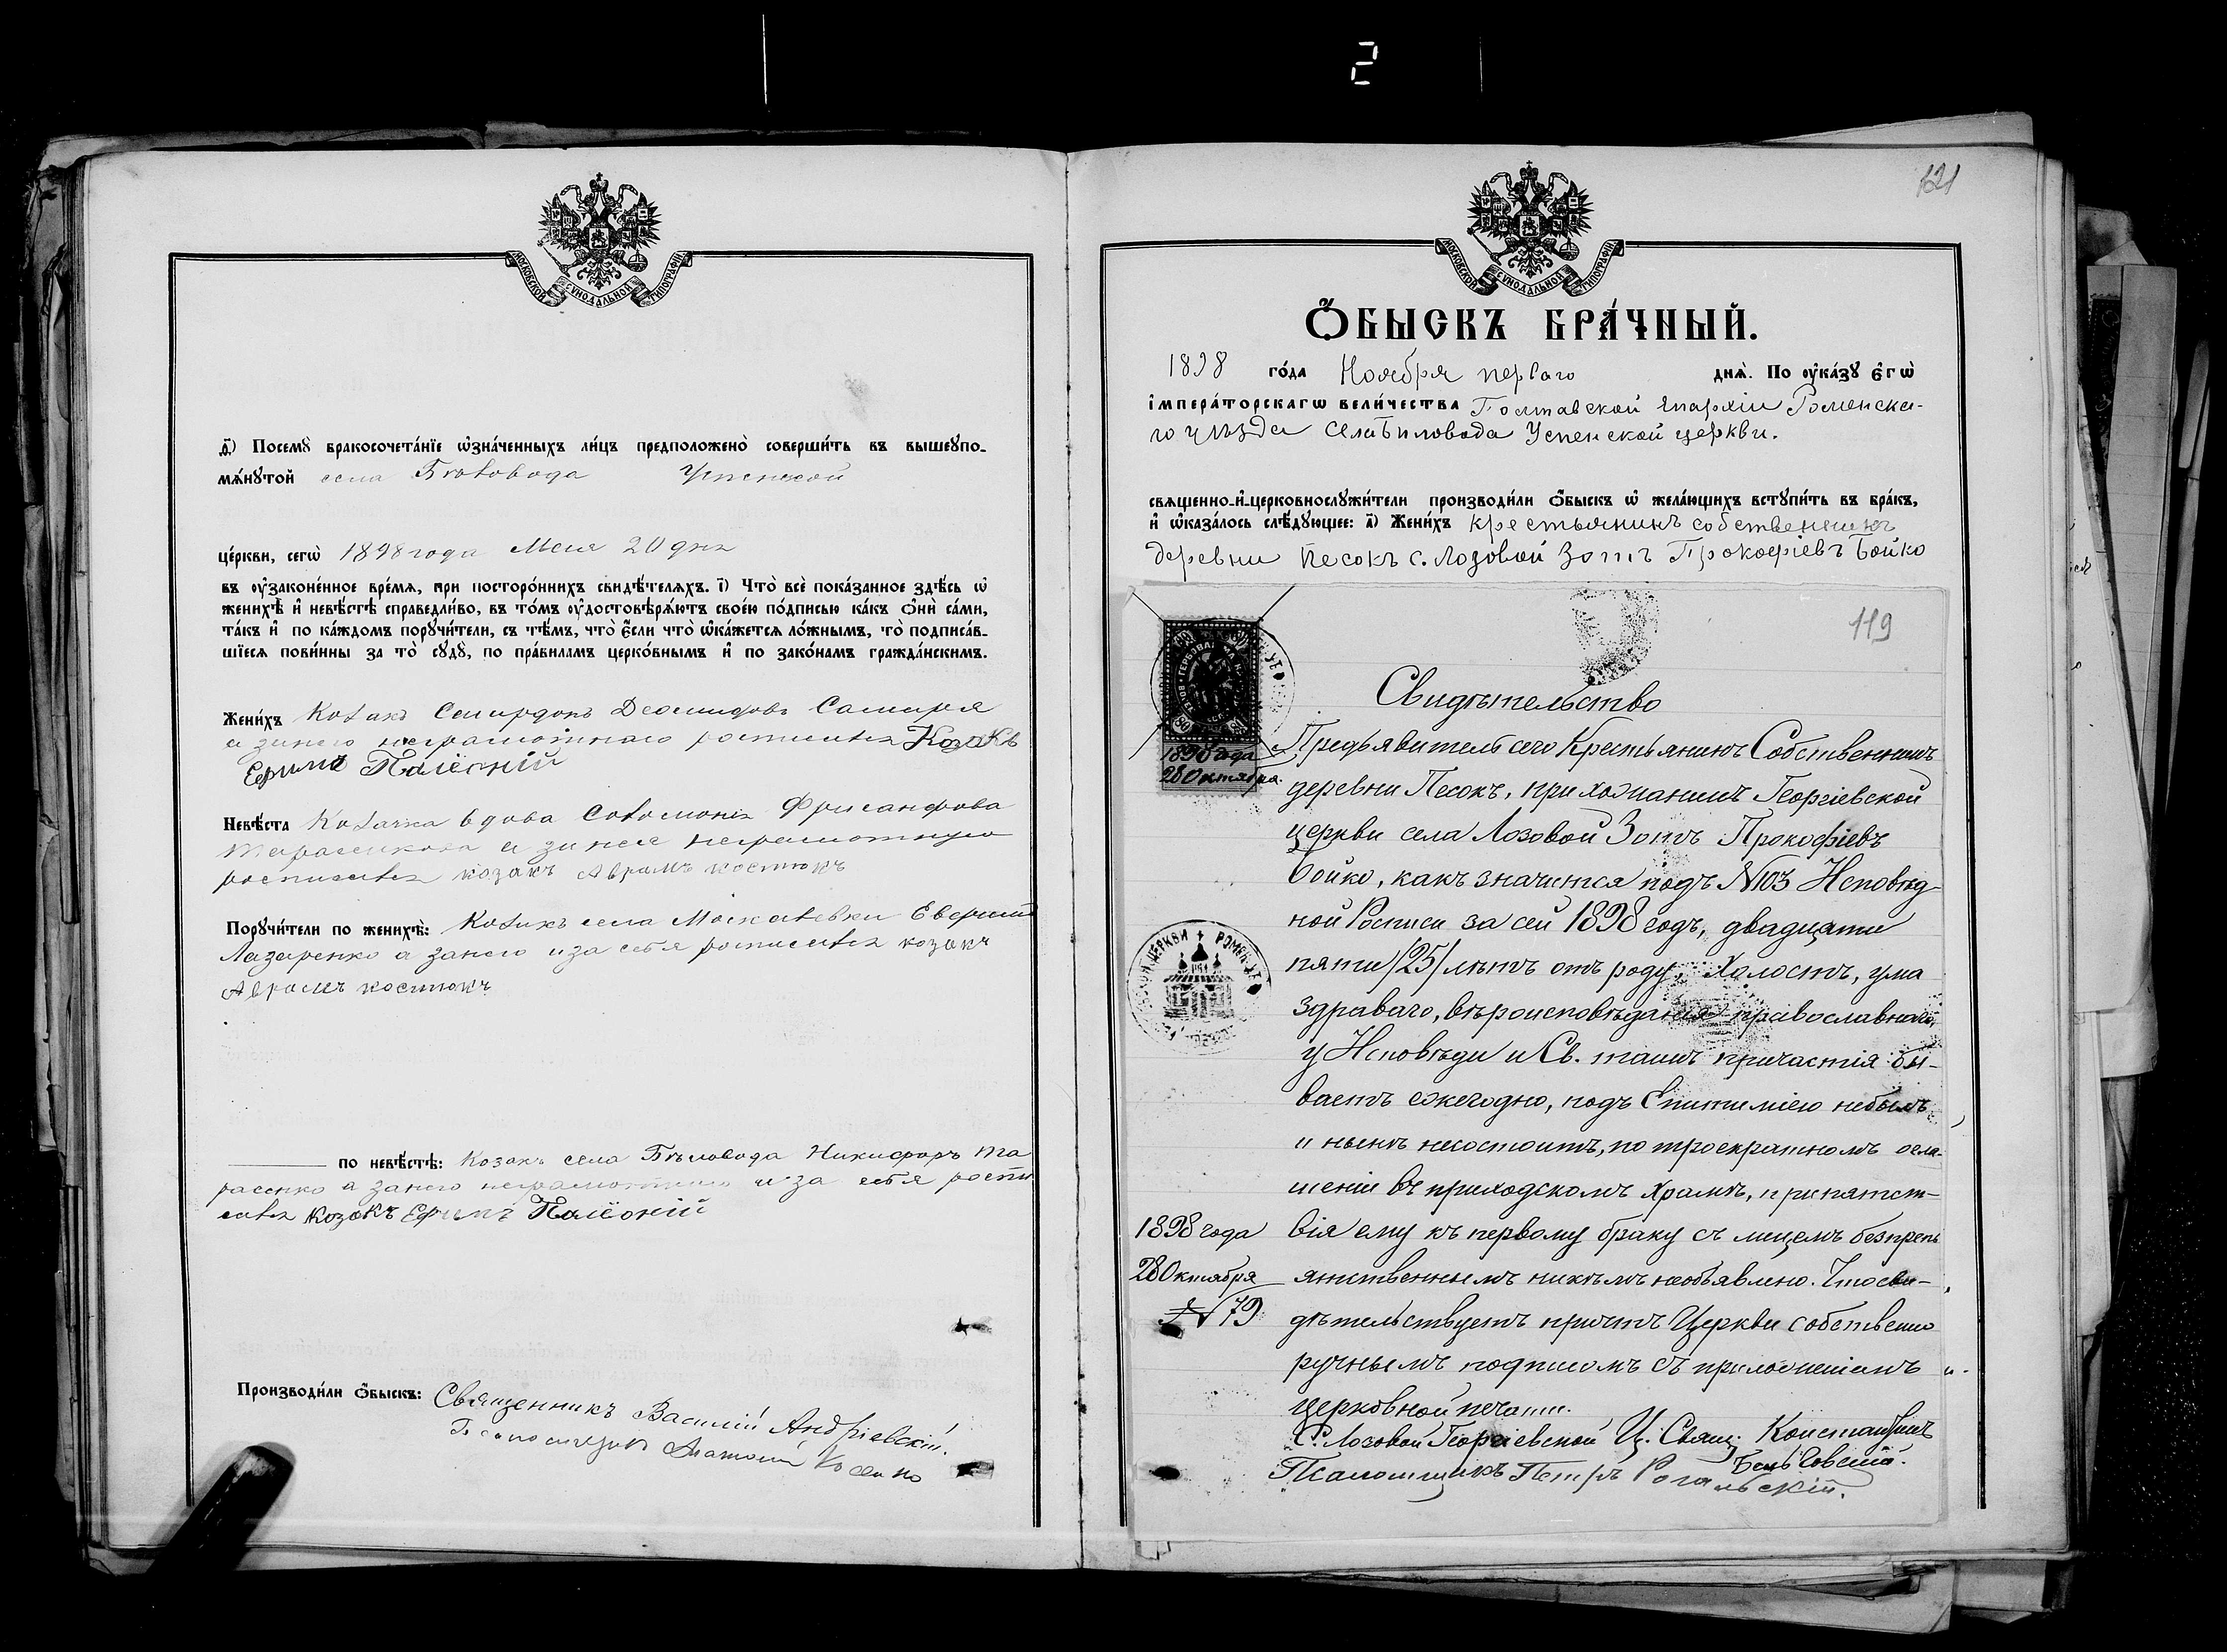 2
МОСКОВСКОЙ СѴНОДАЛЬНОЙ ТИПОГРАФІИ
д҃) Посемꙋ̀ бракосочета́нїе ѡ҆зна́ченныхъ ли́цъ предположено̀ соверши́ть въ вышеꙋпо-
мѧ́нꙋтой села Бѣловода Успенской
це́ркви, сегѡ̀ 1898 года Мая 20 дня
въ ᲂу҆законе́нное вре́мѧ, при посторо́ннихъ свидѣ́телѧхъ. і҃) Что̀ всѐ пока́занное здѣ́сь ѡ҆
женихѣ̀ и҆ невѣ́стѣ справедли́во, въ то́мъ ᲂу҆достовѣрѧ́ютъ свое́ю по́дписью ка́къ ѻ҆нѝ са́ми,
та́къ и҆ по ка́ждомъ порꙋчи́тели, съ тѣ́мъ, что̀ є҆́сли что̀ ѡ҆ка́жетсѧ ло́жнымъ, то̀ подписа́в-
шїесѧ пови́нны за то̀ сꙋдꙋ̀, по пра́виламъ церко́внымъ и҆ по зако́намъ гражда́нскимъ.
Жени́хъ Козакъ Спиридонъ Деомидовъ Самара
а за него неграмотнаго росписался Козакъ
Ефимъ Палёній
Невѣ́ста Козачка вдова Соломонія
Тарасенкова а за нея неграмотную
росписался козакъ Аврамъ костюкъ
Порꙋчи́тели по женихѣ̀: Козакъ села
Лазаренко а за него и за себя росписался козакъ
Аврамъ костюкъ
по невѣ́стѣ: Козакъ села Бѣловода Никифоръ Та
расенко а за него неграмотнаго и за себя роспи
сался козакъ Ефимъ Палёній
Производи́ли ѻ҆́быскъ: Священникъ Василій Андріевскій.
Псаломщикъ Косенко
121
МОСКОВСКОЙ СѴНОДАЛЬНОЙ ТИПОГРАФІИ
Ѻ҆́БЫСКЪ БРА́ЧНЫЙ.
1898 го́да Ноября перваго днѧ̀. По ᲂу҆ка́зꙋ є҆гѡ̀
і҆мпера́торскагѡ вели́чества Полтавской Епархіи Роменска-
го уѣзда села Бѣловода Успенской церкви.
свѧщенно-и҆-церковнослꙋжи́тели производи́ли ѻ҆́быскъ ѡ҆ жела́ющихъ встꙋпи́ть въ бра́къ,
и҆ ѡ҆каза́лось слѣ́дꙋющее: а҃) Жени́хъ крестьянинъ собственникъ
деревни Песокъ с. Лозовой Зотъ Прокофіевъ Бойко
119
Свидѣтельство
1898 года
28 Октября.
Предъявитель сего Крестьянинъ Собственникъ
деревни Песокъ, прихожанинъ Георгіевской
церкви села Лозовой Зотъ Прокофіевъ
Бойко, какъ значится подъ №103 Исповѣд-
ной Росписи за сей 1898 годъ, двадцати
пяти /25/ лѣтъ отъ роду, Холостъ, ума
здраваго, вѣроисповѣданія православнаго,
у Исповѣди и Св. таинъ причастія бы-
ваетъ ежегодно, подъ Епитиміею небылъ
и нынѣ несостоитъ, по троекратномъ огла-
шеніи въ приходскомъ Храмѣ, препятст-
вія ему къ первому браку съ лицемъ безпреп
ятственнымъ никѣмъ необъявлено. Что сви-
дѣтельствуетъ причтъ Церкви собственно
ручнымъ подписомъ съ приложеніемъ
церковной печати.
1898 года
28 Октября
№ 79
С. Лозовой Георгіевской Ц. Свящ. Константинъ
Псаломщикъ Петръ Рогальскій.